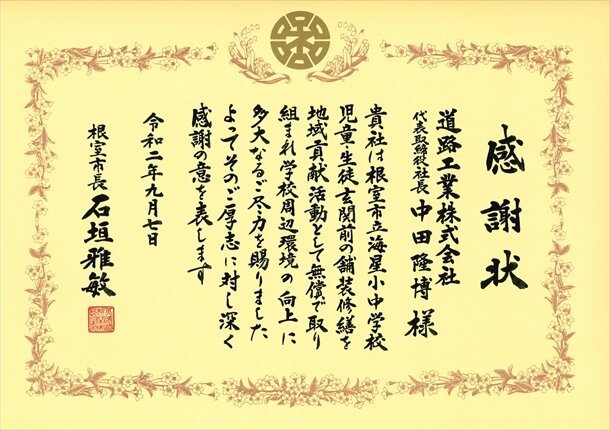 感謝状
道路工業株式会社
代表取締役社長 中田隆博様
貴社は根室市立海星小中学校
児童・生徒玄関前の舗装修繕を
地域貢献活動として無償で取り
組まれ学校周辺環境の向上に
多大なるご尽力を賜りました
よってそのご厚志に対し深く
感謝の意を表します
令和二年九月七日
根室市長 石垣雅敏